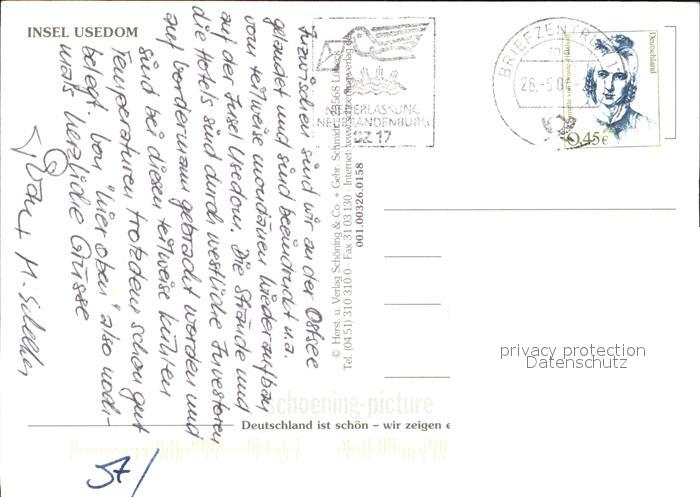 INSEL USEDOM
Inzwischen sind wir an der Ostsee
gelandet und sind beeindruckt u.a.
vom teilweise mondänen Wiederaufbau
auf der Insel Usedom. Die Strände und
die Hotels sind durch westliche Investoren
auf Vordermann gebracht worden und
sind bei diesen teilweise kühlen
Temperaturen trotzdem schon gut
belegt. Von "hier oben" also noch-
mals herzliche Grüsse
BRIEFZENTRUM
26.-5.0
Deutschland
0,45€
NIEDERLASSUNG
NEUBRANDENBURG
BZ 17
© Herst. u. Verlag Schöning & Co. + Gebr. Schmidt, 23568 Lübeck
Tel. (04 51) 310 310 0 · Fax 31 03 130 · Internet: www.schoening-verlag.de
001.00326.0158
privacy protection
Datenschutz
schoening-picture
Deutschland ist schön – wir zeigen e
57/